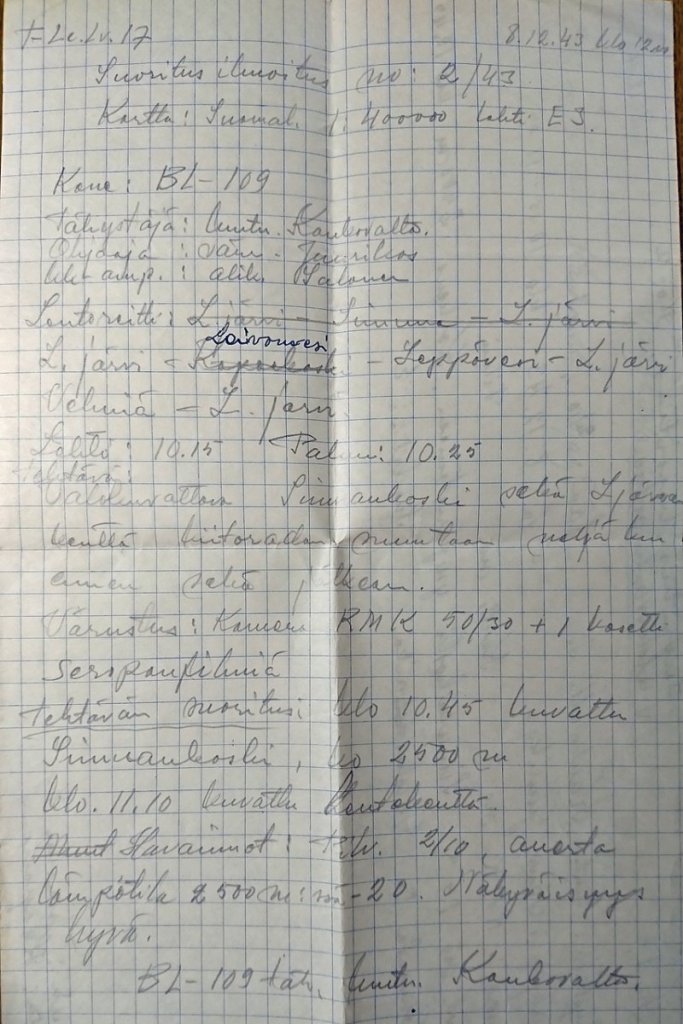 T-Le.Lv.17
8.12.43 klo 12
Suoritus ilmoitus no: 2/43
Kartta: Suomal. 1:400000 lehti E3.
Kone: BL-109
Tähystäjä: luutn. Kaukovalta.
Ohjaaja: vänr.
kk-amp.: alik. Salonen
Lentoreitti: L. järvi - - L. järvi
Laivonvesi
L. järvi - - Leppävesi - L. järvi
- L. järvi
Lähtö: 10.15 Paluu: 10.25
Tehtävä:
Valokuvattava Simunankoski sekä Ljärven
kenttä kiitoradan suuntaan neljä
ennen sekä jälkeen.
Varustus: Kamera RMK 50/30 + 1 kasetti
Tehtävän suoritus: klo 10.45 kuvattu
Simunankoski, ko 2500 m
klo. 11.10 kuvattu lentokenttä.
Muut Havainnot: Pilv. 2/10, auerta
lämpötila 2500 m:ssä -20. Näkyväisyys
hyvä.
BL-109 täh. luutn. Kaukovalta.